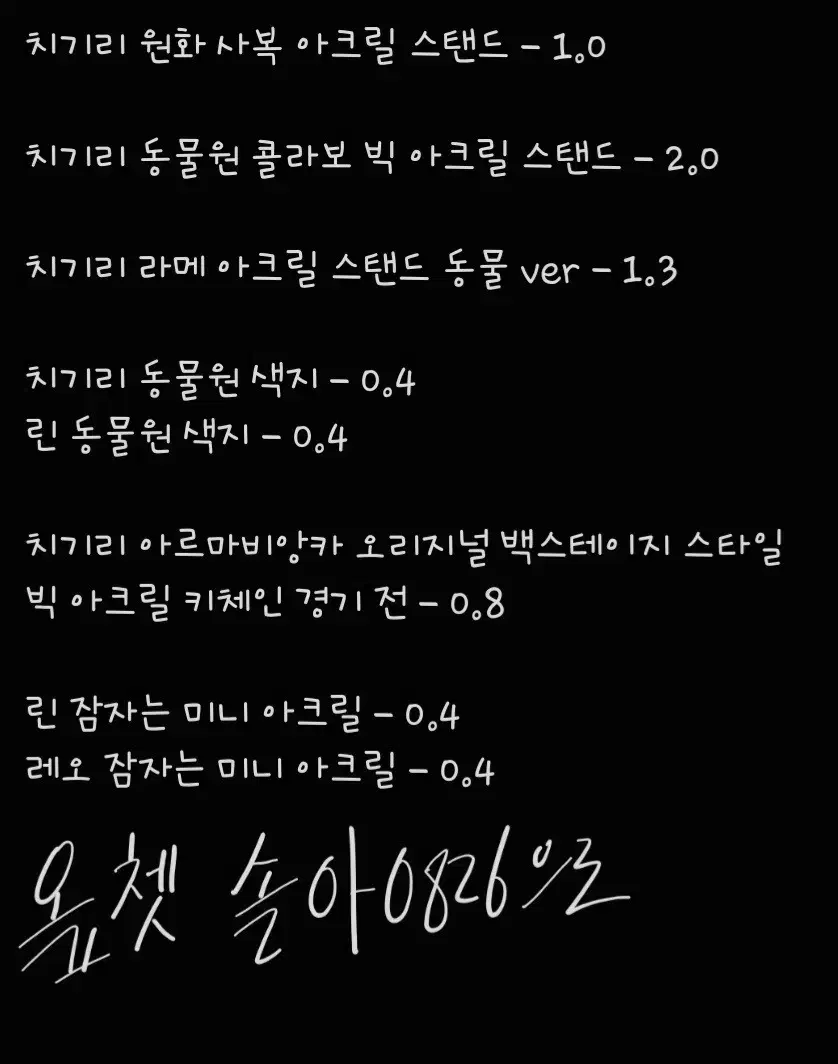 치기리 원화 사복 아크릴 스탠드 - 1.0
치기리 동물원 콜라보 빅 아크릴 스탠드 - 2.0
치기리 라메 아크릴 스탠드 동물 ver - 1.3
치기리 동물원 색지 - 0.4
린 동물원 색지 - 0.4
치기리 아르마비앙카 오리지널 백스테이지 스타일
빅 아크릴 키체인 경기 전 - 0.8
린 잠자는 미니 아크릴 - 0.4
레오 잠자는 미니 아크릴 - 0.4
옾쳇 솔아0826으로